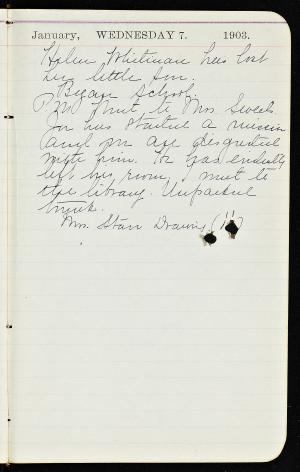 January, WEDNESDAY 7. 1903.
Helen Whitman has lost
her little son.
Began School.
P.M. Went to Mrs. Sweets.
Jn has started a
and are disgusted
with him. He has
left his room. went to
the library. Unpacked
trunk.
Mrs. Starr Drawing (11)